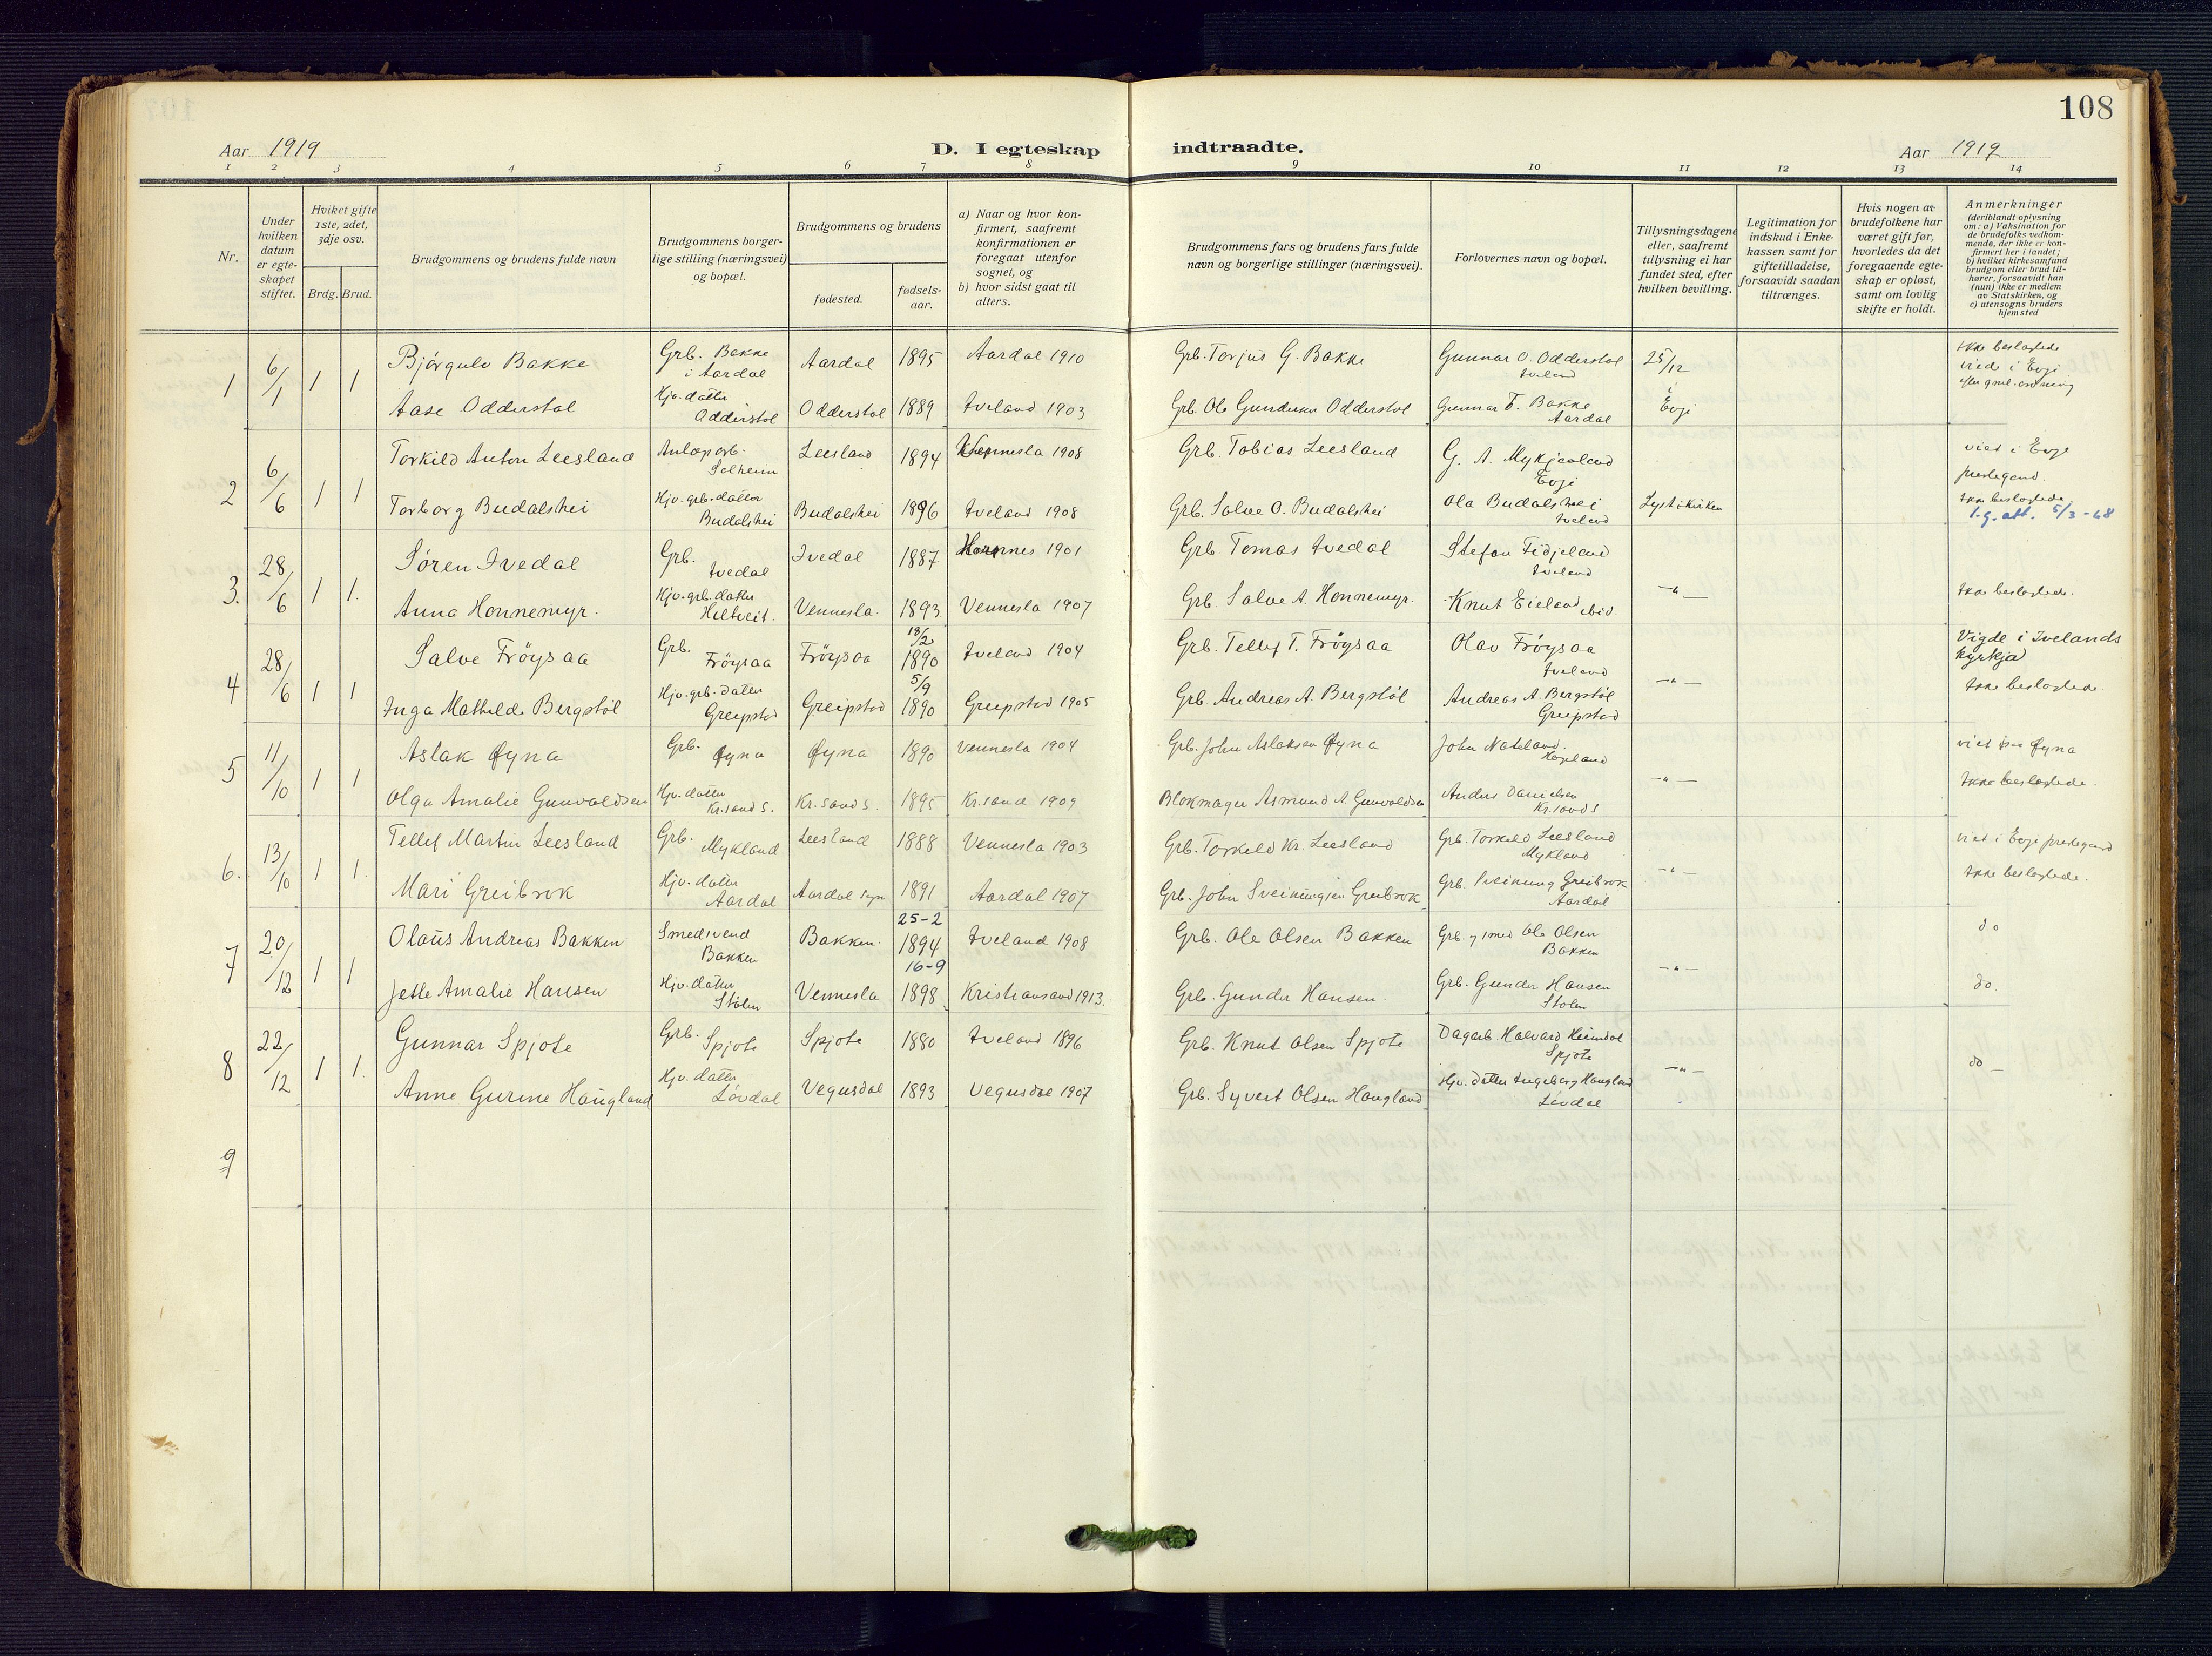 108
Aar 1919
D. I egteskap indtraadte.
Aar 1919
1 2 3 4 5 6 7 8 9 10 11 12 13 14
Nr.
Under hvilken datum er egteskapet stiftet.
Hviket gifte 1ste, 2det, 3dje osv.
Brdg. Brud.
Brudgommens og brudens fulde navn
Brudgommens borgerlige stilling (næringsvei) og bopæl.
Brudgommens og brudens
fødested.
fødselsaar.
a) Naar og hvor konfirmert, saafremt konfirmationen er foregaat utenfor sognet, og
b) hvor sidst gaat til alters.
Brudgommens fars og brudens fars fulde navn og borgerlige stillinger (næringsvei).
Forlovernes navn og bopæl.
Tillysningsdagene eller, saafremt tillysning ei har fundet sted, efter hvilken bevilling.
Legitimation for indskud i Enkekassen samt for giftetilladelse, forsaavidt saadan tiltrænges.
Hvis nogen av brudefolkene har været gift før, hvorledes da det foregaaende egteskap er opløst, samt om lovlig skifte er holdt.
Anmerkninger
(deriblandt oplysning om: a) Vaksination for de brudefolks vedkommende, der ikke er konfirmert her i landet; b) hvilket kirkesamfund brudgom eller brud tilhører, forsaavidt han (hun) ikke er medlem av Statskirken, og c) utensogns bruders hjemsted
1 6/1 1 1 Bjørgulv Bakke Grb. Bakke i Aardal Aardal 1895 Aardal 1910 Grb. Torjus G. Bakke Gunnar O. Odderstol Iveland 25/12 Ikke beslegtede vied i Evje
Aase Odderstol Hjv. datter Odderstol Odderstol 1889 Iveland 1903 Grb. Ole Gundersen Odderstol Gunnar T. Bakke Aardal i Evje
2 6/6 1 1 Torkild Anton Leesland Anlægsarb. Solheim Leesland 1894 Vennesla 1908 Grb. Tobias Leesland G. A. Mykjaaland Evje viet i Evje prestegaard.
Torborg Budalshei Hjv. grb. datter Budalshei Budalshei 1896 Iveland 1908 Grb. Salve O. Budalshei Ola Budalshei Iveland Lyst i kirken Ikke beslegtede.
l.g. att. 5/3-48
3. 28/6 1 1. Søren Ivedal Grb. Ivedal Ivedal 1887 Hornnes 1901 Grb. Tomas Ivedal Stefan Fidjeland Iveland
Anna Honnemyr. Hjv. grb. datter Heltveit. Vennesla. 1893 Vennesla 1907 Grb. Salve A. Honnemyr. Knut Eieland ibid. -"- Ikke beslegtede.
4 28/6 1 1 Salve Frøysaa Grb. Frøysaa Frøysaa 18/2 1890 Iveland 1904 Grb. Tellef T. Frøysaa Olav Frøysaa Iveland Vigde i Ivelands kyrkja
Inga Mathilde Bergstøl Hjv. grb. datter Greipstad Greipstad 5/9 1890 Greipstad 1905 Grb. Andreas A. Bergstøl Andreas A. Bergstøl Greipstad -"- Ikke beslegtede.
5 11/10 1 1 Aslak Øyna Grb. Øyna Øyna 1890 Vennesla 1904 Grb. John Aslaksen Øyna John Nateland. viet paa Øyna
Olga Amalie Gunvaldsen Hjv. datter Kr.sand S. Kr.sand S. 1895 Kr.sand 1909 Blokmager Asmund A Gunvaldsen Anders Danielsen Kr.sand S -"- Ikke beslegtede.
6. 13/10 1 1. Tellef Martin Leesland Grb. Mykland Leesland 1888 Vennesla 1903 Grb. Torkeld Kr. Leesland Grb. Torkeld Leesland Mykland viet i Evje prestegaard
Mari Greibrok Hjv. datter Aardal Aardal sogn 1891 Aardal 1907 Grb. John Sveinungsen Greibrok Grb. Sveinung Greibrok Aardal -"- Ikke beslegtede.
7 20/12 1 1 Olaus Andreas Bakken Smedsvend Bakken Bakken. 25-2 1894 Iveland 1908 Grb. Ole Olsen Bakken Grb. og smed Ole Olsen Bakken do
Jelle Amalie Hansen Hjv. datter Stølen Vennesla 16-9 1898 Kristiansand 1913. Grb. Gunder Hansen. Grb. Gunder Hansen Stølen -"- do
8 22/12 1 1. Gunnar Spjote Grb. Spjote Spjote 1880 Iveland 1896 Grb. Knut Olsen Spjote Dagarb. Halvard Heimdal Spjote
Anne Gurine Haugland Hjv. datter Løvdal Vegusdal 1893 Vegusdal 1907 Grb. Syvert Olsen Haugland Hjv. datter Ingeborg Haugland Løvdal -"- do
9